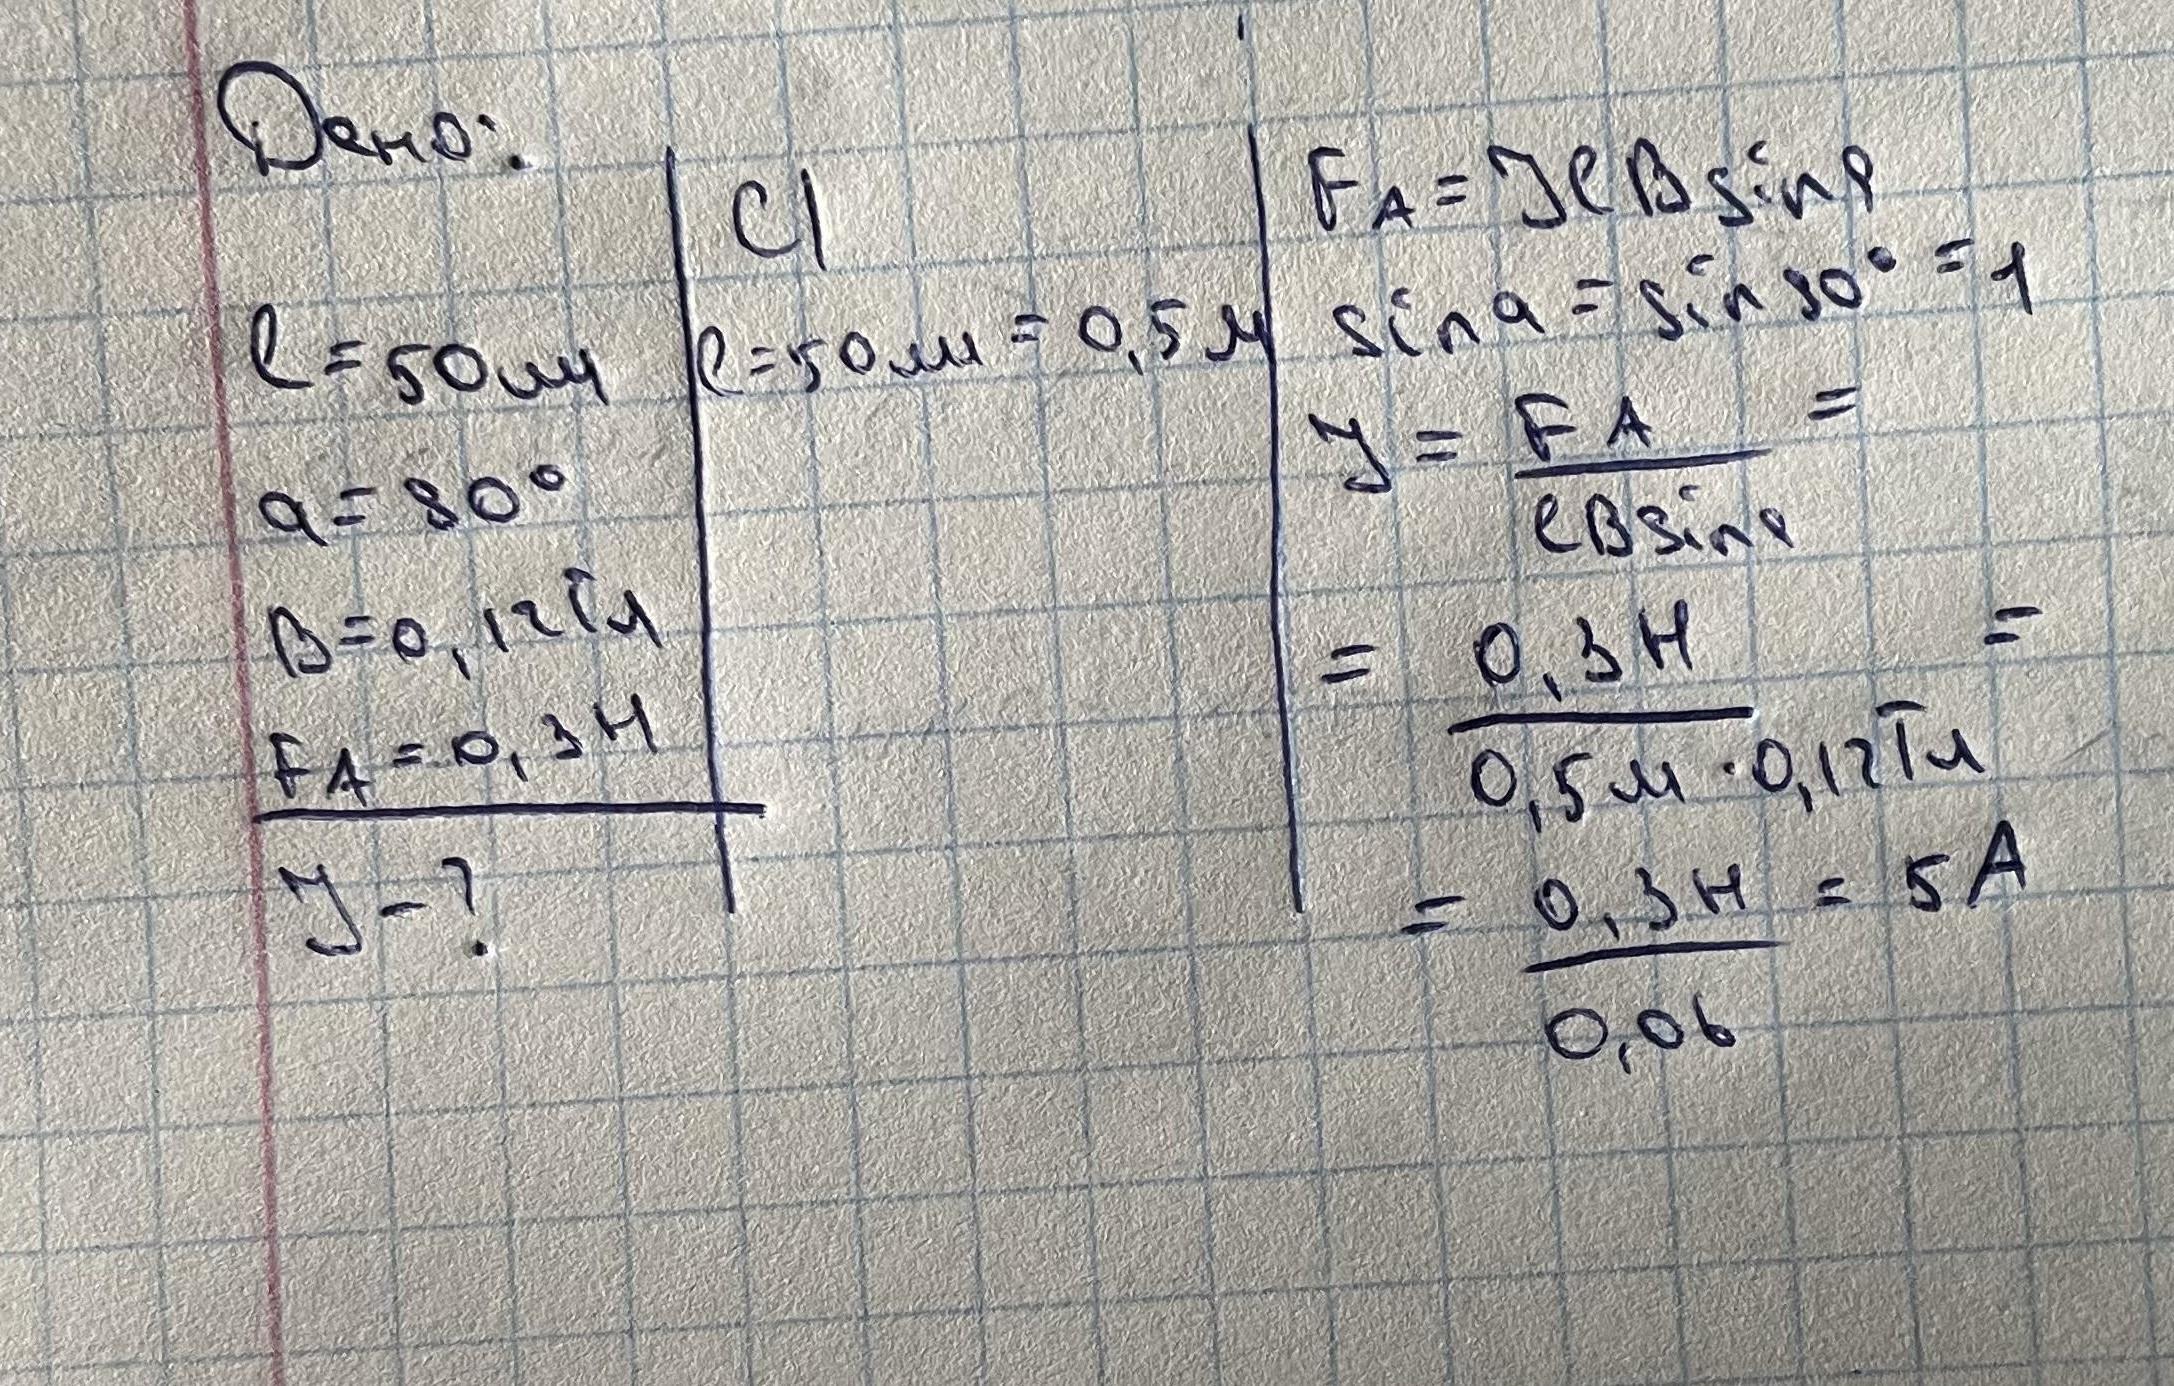 Дано:
l = 50 мм
a = 90°
B = 0,12 Тл
FA = 0,3 Н
J - ?
СІ
l = 50 мм = 0,5 м
FA = JlB sin α
sin a = sin 90° = 1
J = FA / lB sin α =
= 0,3 Н / 0,5 м · 0,12 Тл =
= 0,3 Н / 0,06 = 5 А